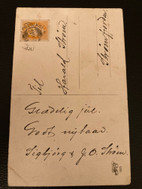 Til
Harald Strøm
Strømfjorden
Glædelig jul.
Godt nytaar
Sigbjørg & O. Strøm